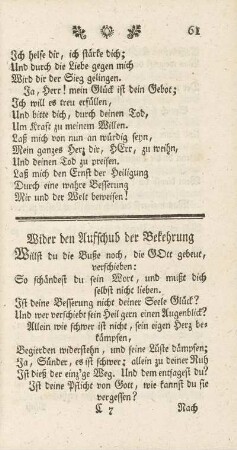 61
Ich helfe dir, ich stärke dich;
Und durch die Liebe gegen mich
Wird dir der Sieg gelingen.
Ja, Herr! mein Glück ist dein Gebot;
Ich will es treu erfüllen,
Und bitte dich, durch deinen Tod,
Um Kraft zu meinem Willen.
Laß mich von nun an würdig seyn,
Mein ganzes Herz dir, HErr, zu weihn,
Und deinen Tod zu preisen.
Laß mich den Ernst der Heiligung
Durch eine wahre Besserung
Mir und der Welt beweisen!
Wider den Aufschub der Bekehrung
Willst du die Buße noch, die GOtt gebeut,
verschieben:
So schändest du sein Wort, und mußt dich
selbst nicht lieben.
Ist deine Besserung nicht deiner Seele Glück?
Und wer verschiebt sein Heil gern einen Augenblick?
Allein wie schwer ist nicht, sein eigen Herz be-
kämpfen,
Begierden widerstehn, und seine Lüste dämpfen;
Ja, Sünder, es ist schwer; allein zu deiner Ruh
Ist dieß der einz'ge Weg. Und dem entsagest du?
Ist deine Pflicht von Gott, wie kannst du sie
vergessen?
C 7 Nach